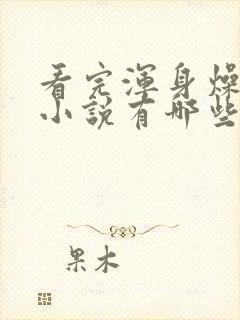 看完渾身燥
小說有哪些
果木